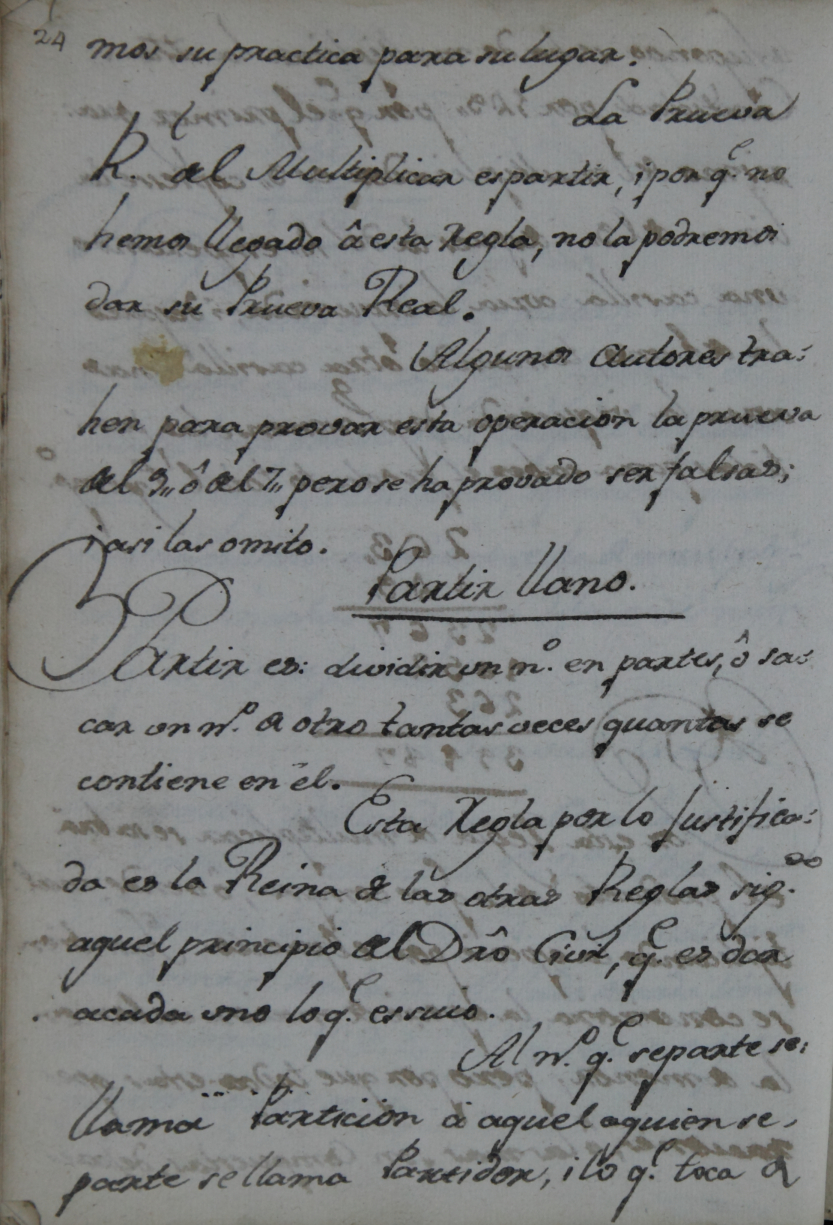 24
mos su practica para su lugar.
La Prueva
R. del Multiplicar es partir, i por q.e no
hemos llegado â esta Regla, no la podremos
dar su Prueva Real.
Algunos autores tra:
hen para provar esta operacion la prueva
del 9,, ô del 7,, pero se ha provado ser falsas;
i asi las omito.
Partir llano.
Partir es: dividir un n.º en partes, ô sa:
car un n.º de otro tantas veces quantas se
contiene en el.
Esta Regla por lo Justifica:
da es la Reina de las otras Reglas sig.do
aquel principio del Drô Civil, q.e es dar
acada uno lo q.e es suio.
Al n.º q.e se parte se:
llama Particion à aquel aquien se,
parte se llama Partidor, i lo q.e toca a